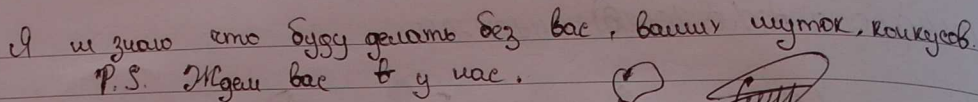 Я не знаю что буду делать без вас, ваших шуток, конкусов.
P.S. Ждем вас в у нас.